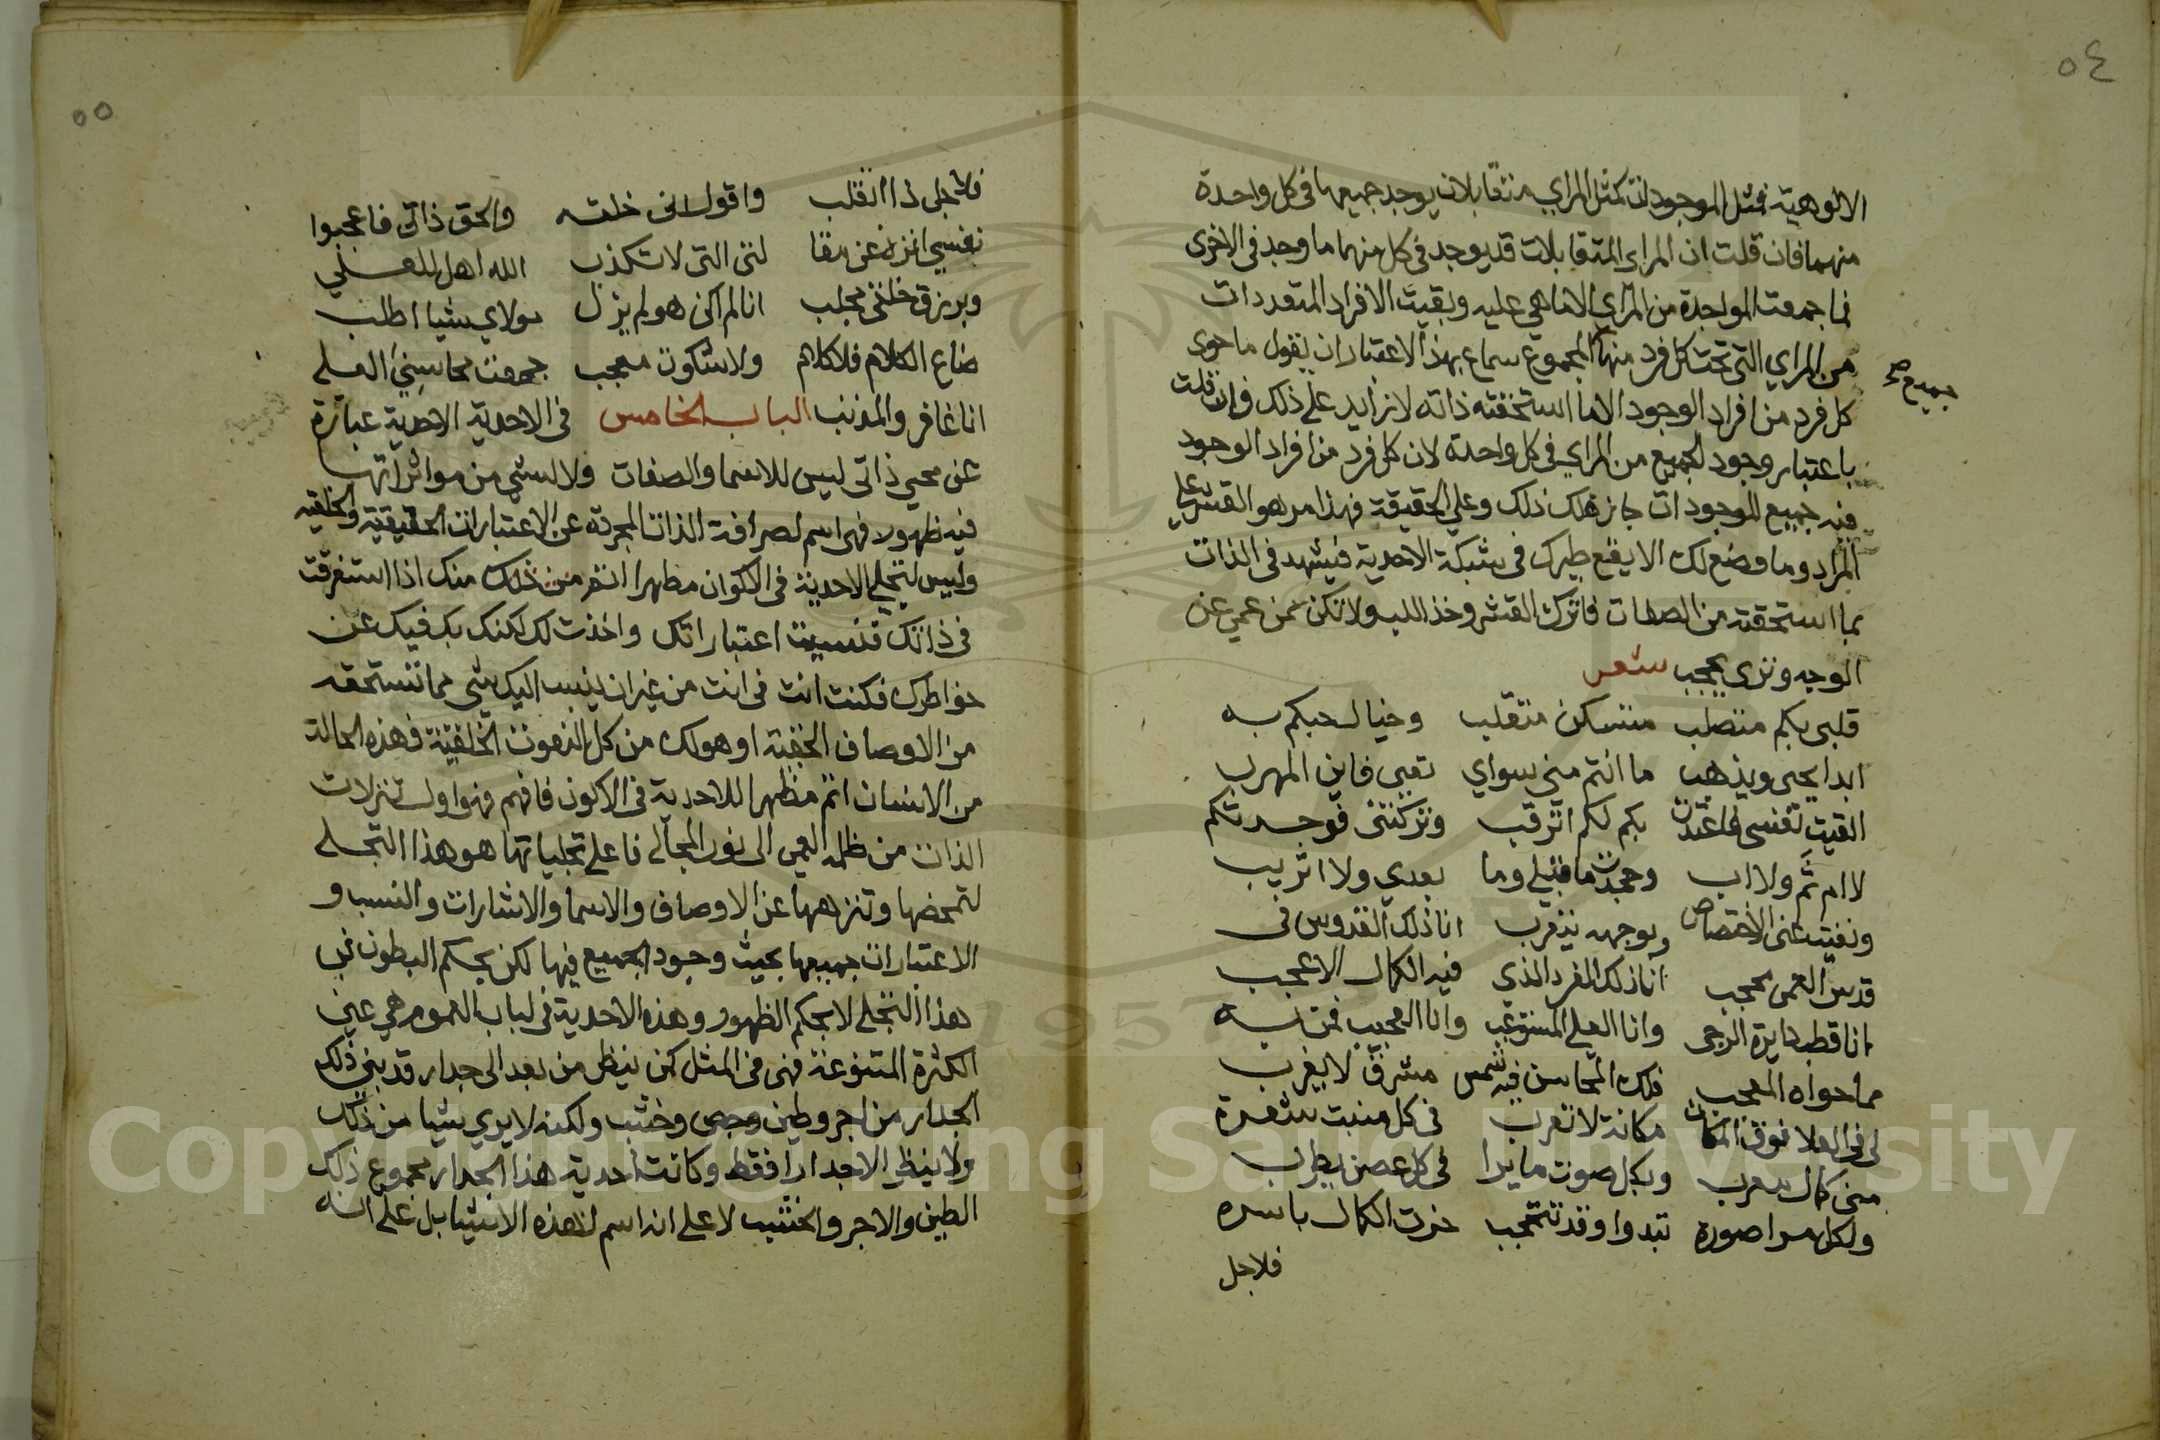 ٥٤
الالوهية فمثل الموجودات كمثل المراي متقابلات يوجد جميعها في كل واحدة
منهما فان قلت ان المراي المتقابلات قد يوجد في كل منهما ما وجد في الاخرى
فما جمعت الواحدة من المراي الا ما هي عليه وبقيت الافراد المتعددات
من المراي التي تحت كل فرد منها المجموع ساع بهذا الاعتبار ان نقول ما حوى
جميع صح
كل فرد من افراد الوجود الا ما استحقته ذاته لا زايد على ذلك وان قلت
باعتبار وجود الجميع من المراي في كل واحدة لان كل فرد من افراد الوجود
فيه جميع الموجودات جاز لك ذلك وعلي الحقيقة فهذا امر هو القشر على
المراد وما وضع لك الا ليقع طيرك في شبكة الاحدية فيشهد في الذات
بما استحقته من الصفات فاترك القشر وخذ اللب ولا تكن ممن عمي عن
الوجه وترى بحجب شعر
قلبي بكم متصلب متسكن متقلب وخيال حبكم به
ابدا يجي ويذهب ما انتم مني سواي نعيي فاين المهرب
القيت نفسي فاغتدت بكم لكم اترقب وتركتني فوجدتكم
لا ام ثم ولا اب وجحدت ما قبلي وما بعدي ولا اتريب
ونفيت عني الاختصاص وبوجهه يتقرب انا ذلك القدوس في
قدس العمى محجب انا ذلك الفرد الذي فيه الكمال الاعجب
انا قطب دايرة الرحى وانا العلي المستوعب وانا العجيب فمن به
مما حواه المعجب فلك المحاسن فيه شمس مشرق لا يغرب
لي في العلا فوق المكان مكانة لا تقرب في كل منبت شعرة
مني كمال معرب وبكل صوت ما يرا في كل غصن يطرب
ولكل مرا صورة تبدوا وقد تتحجب حزت الكمال باسره
فلاجل
٥٥
فلاجل ذا اتقلب واقول اني خلته والحق ذاتي فاعجبوا
نفسي انزه عن مقا لتي التي لا تكذب الله اهل للعلي
وبريق خلقي مجلب انا لم اكن هو لم يزل مولاي شيا اطلب
ضاع الكلام فلا كلام ولا سكوت معجب جمعت محاسني العلي
انا غافر والمذنب الباب الخامس في الاحدية الاحدية عبارة
عن مجلي ذاتي ليس للاسما والصفات ولا لشي من موثراتها
فيه ظهور فهي اسم لصرافة الذات المجردة عن الاعتبارات الحقيقية والخلقيه
وليس لتجلي الاحدية في الاكوان مظهرا اتم من ذلك منك اذا استغرقت
في ذاتك ونسيت اعتباراتك واخذت لك لكنك بك فيك عن
خواطرك فكنت انت في انت من غير ان ينسب اليك شي مما تستحقه
من الاوصاف الحقية او هو لك من كل النعوت الخلقية فهذه الحالة
من الانسان اتم مظهرا للاحدية في الاكون فافهم فهو اول تنزلات
الذات من ظلمه العمى الى نور المجالي فاعلي تجلياتها هو هذا التجلي
لتمحضها وتنزهها عن الاوصاف والاسما والاشارات والنسب و
الاعتبارات جميعها بحيث وجود الجميع فيها لكن بحكم البطون في
هذا التجلي لا بحكم الظهور وهذه الاحدية في لباب العموم هي عين
الكثرة المتنوعة فهي في المثل كمن ينظر من بعد الى جدار قد بني ذلك
الجدار من اجر وطين وجص وخشب ولكنه لا يري شيا من ذلك
ولا ينظر الا جدارا فقط وكانت احدية هذا الجدار مجموع ذلك
الطين والاجر والخشب لا على انه اسم لهذه الاشيا بل على انه